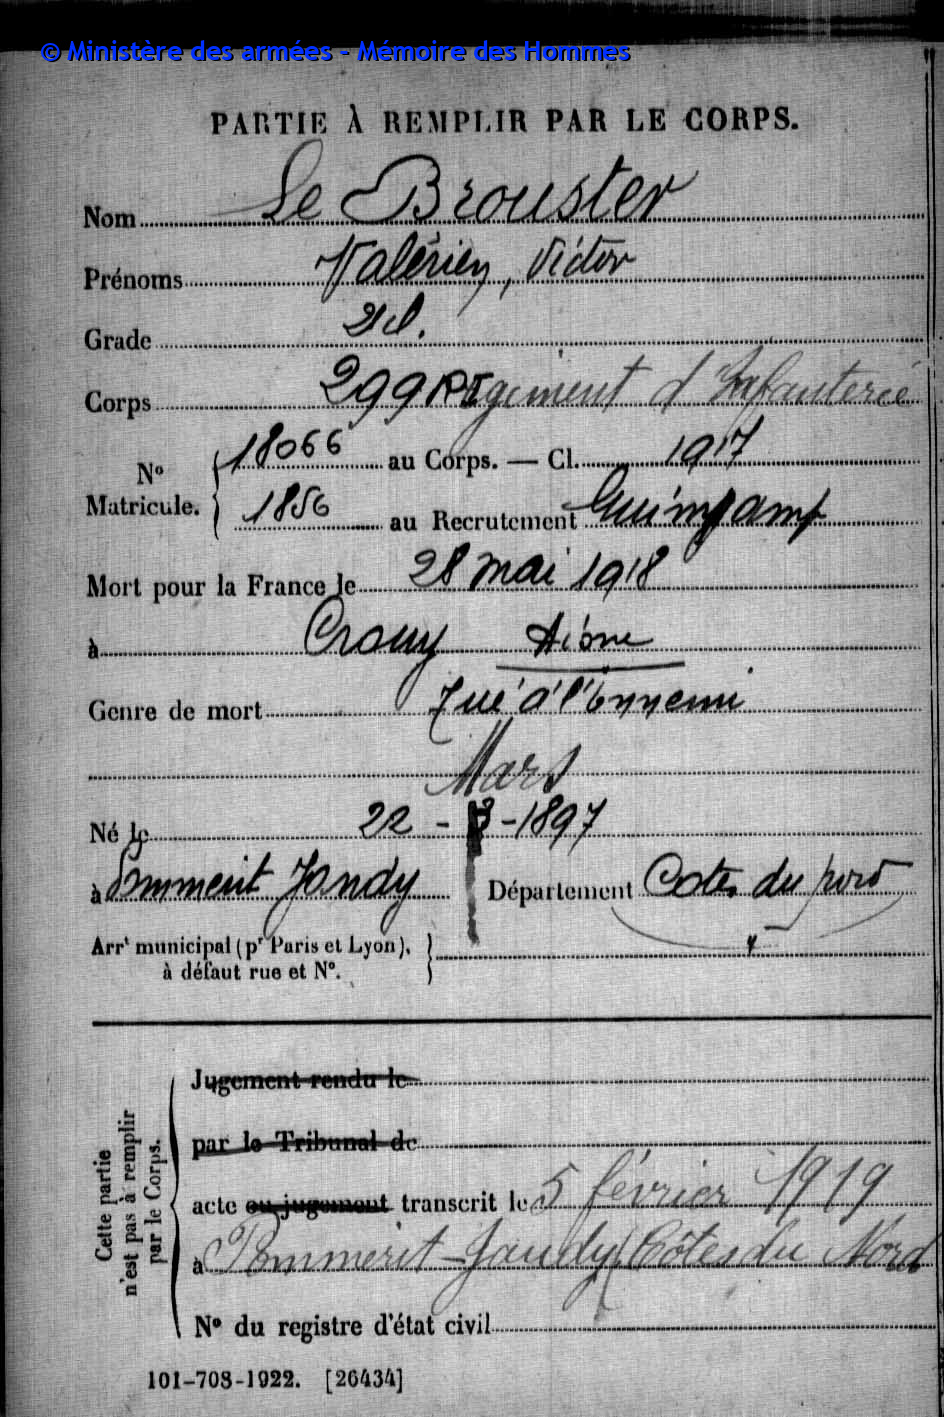 © Ministère des armées - Mémoire des Hommes
PARTIE À REMPLIR PAR LE CORPS.
Nom Le Brouster
Prénoms Valérien, Victor
Grade 2 cl.
Corps 299 RI Regiment d'Infanterie
No Matricule. { 18066 au Corps. — Cl. 1917
1856 au Recrutement Guingamp
Mort pour la France le 28 mai 1918
à Crouy Aisne
Genre de mort Tué à l'Ennemi
Mars
Né le 22 - 3 - 1897
à Pommerit Jaudy Département Cotes du Nord
Arrt municipal (pr Paris et Lyon), à défaut rue et No. }
Cette partie n'est pas à remplir par le Corps.
Jugement rendu le
par le Tribunal de
acte ou jugement transcrit le 5 février 1919
à Pommerit-Jaudy (Côtes du Nord
No du registre d'état civil
101-708-1922. [26434]